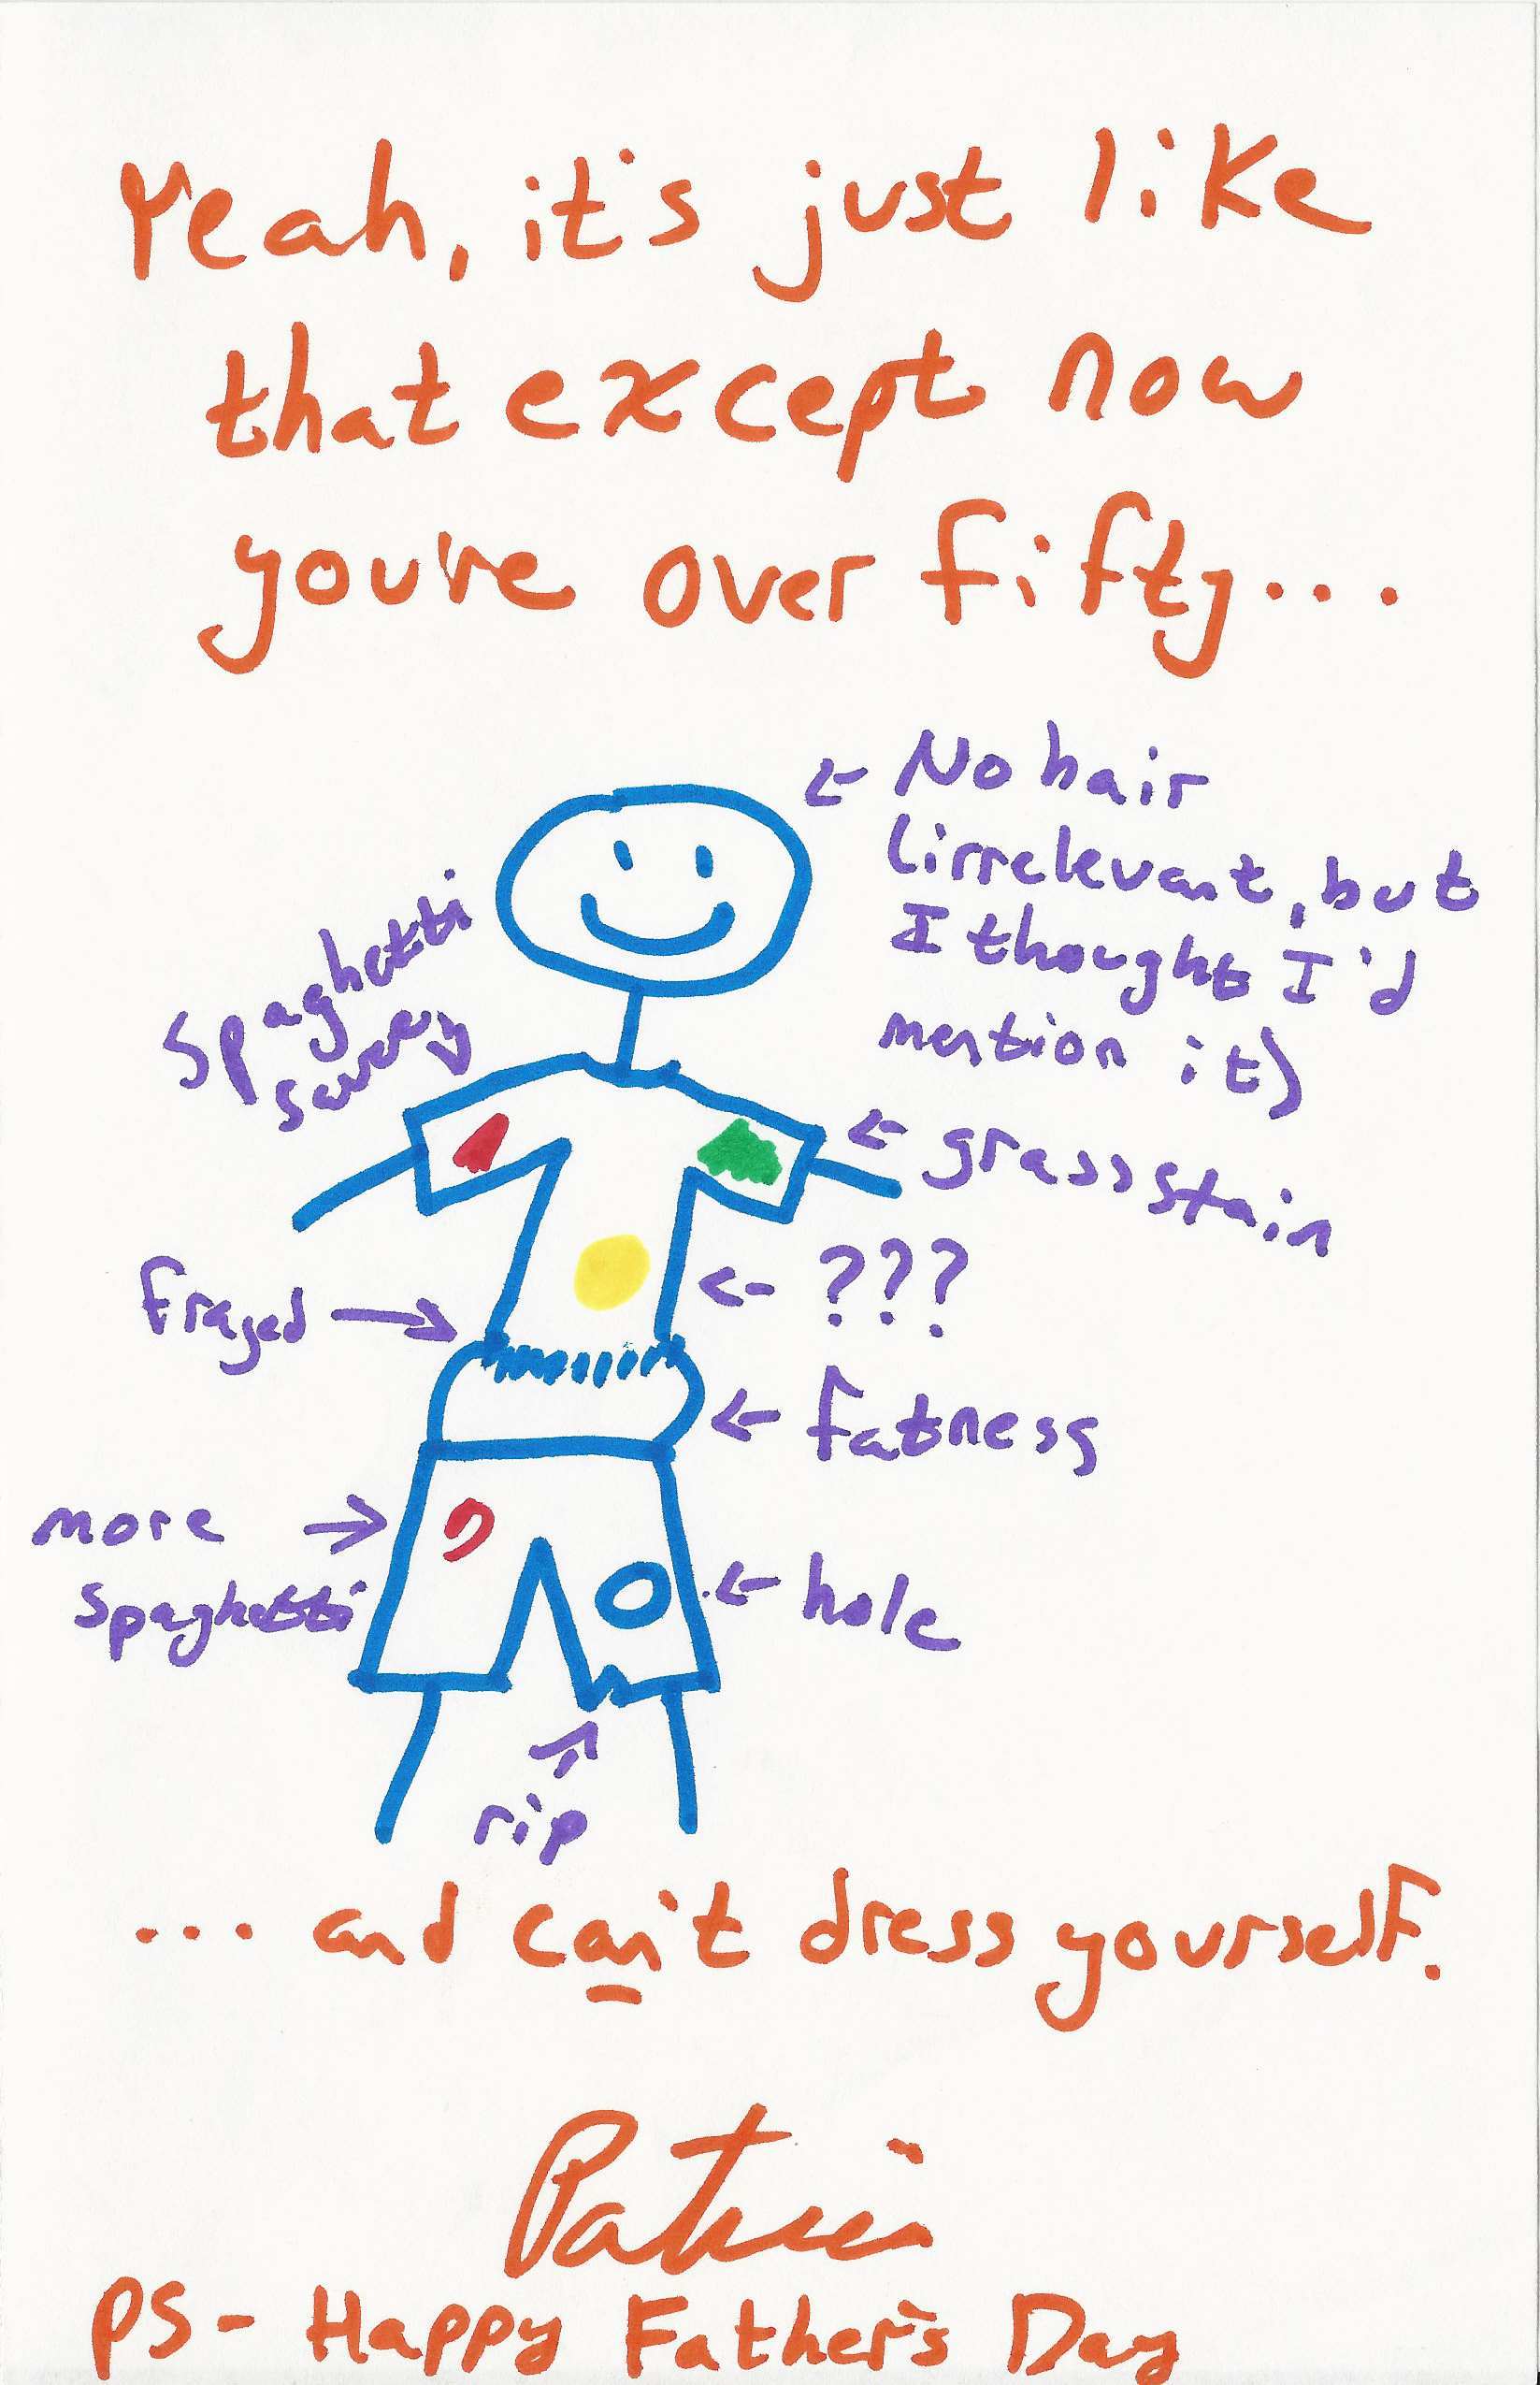 Yeah, it's just like
that except now
you're over fifty...
← No hair
(irrelevant, but
I thought I'd
mention it)
Spaghetti
← grass stain
Frayed →
← ???
← fatness
more →
spaghetti
← hole
rip
... and can't dress yourself.
PS- Happy Father's Day